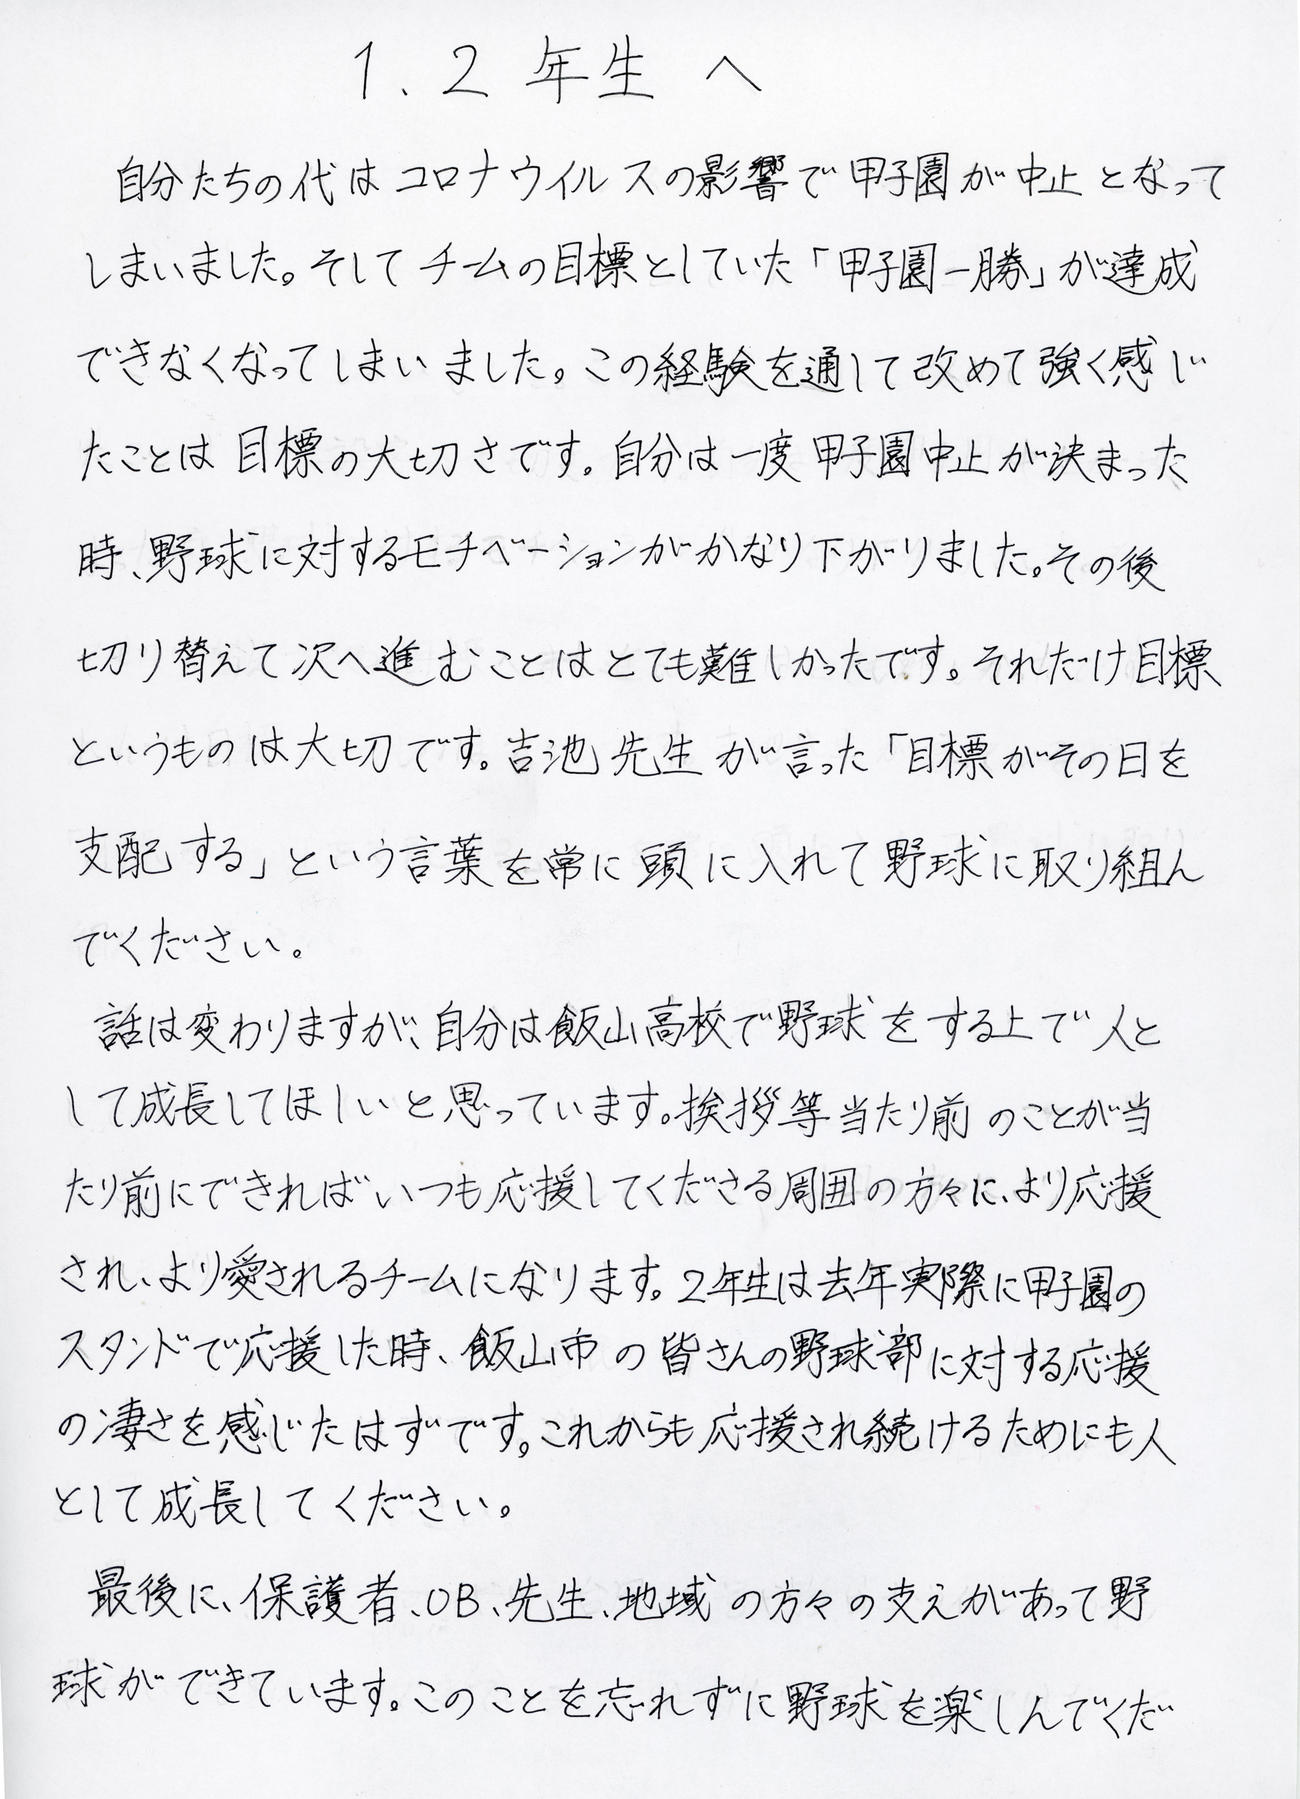 1.2年生へ
自分たちの代はコロナウイルスの影響で甲子園が中止となって
しまいました。そしてチームの目標としていた「甲子園一勝」が達成
できなくなってしまいました。この経験を通して改めて強く感じ
たことは目標の大切さです。自分は一度甲子園中止が決まった
時、野球に対するモチベーションがかなり下がりました。その後
切り替えて次へ進むことはとても難しかったです。それだけ目標
というものは大切です。吉池先生が言った「目標がその日を
支配する」という言葉を常に頭に入れて野球に取り組ん
でください。
話は変わりますが、自分は飯山高校で野球をする上で人と
して成長してほしいと思っています。挨拶等当たり前のことが当
たり前にできればいつも応援してくださる周囲の方々に、より応援
され、より愛されるチームになります。2年生は去年実際に甲子園の
スタンドで応援した時、飯山市の皆さんの野球部に対する応援
の凄さを感じたはずです。これからも応援され続けるためにも人
として成長してください。
最後に、保護者、OB、先生、地域の方々の支えがあって野
球ができています。このことを忘れずに野球を楽しんでくだ